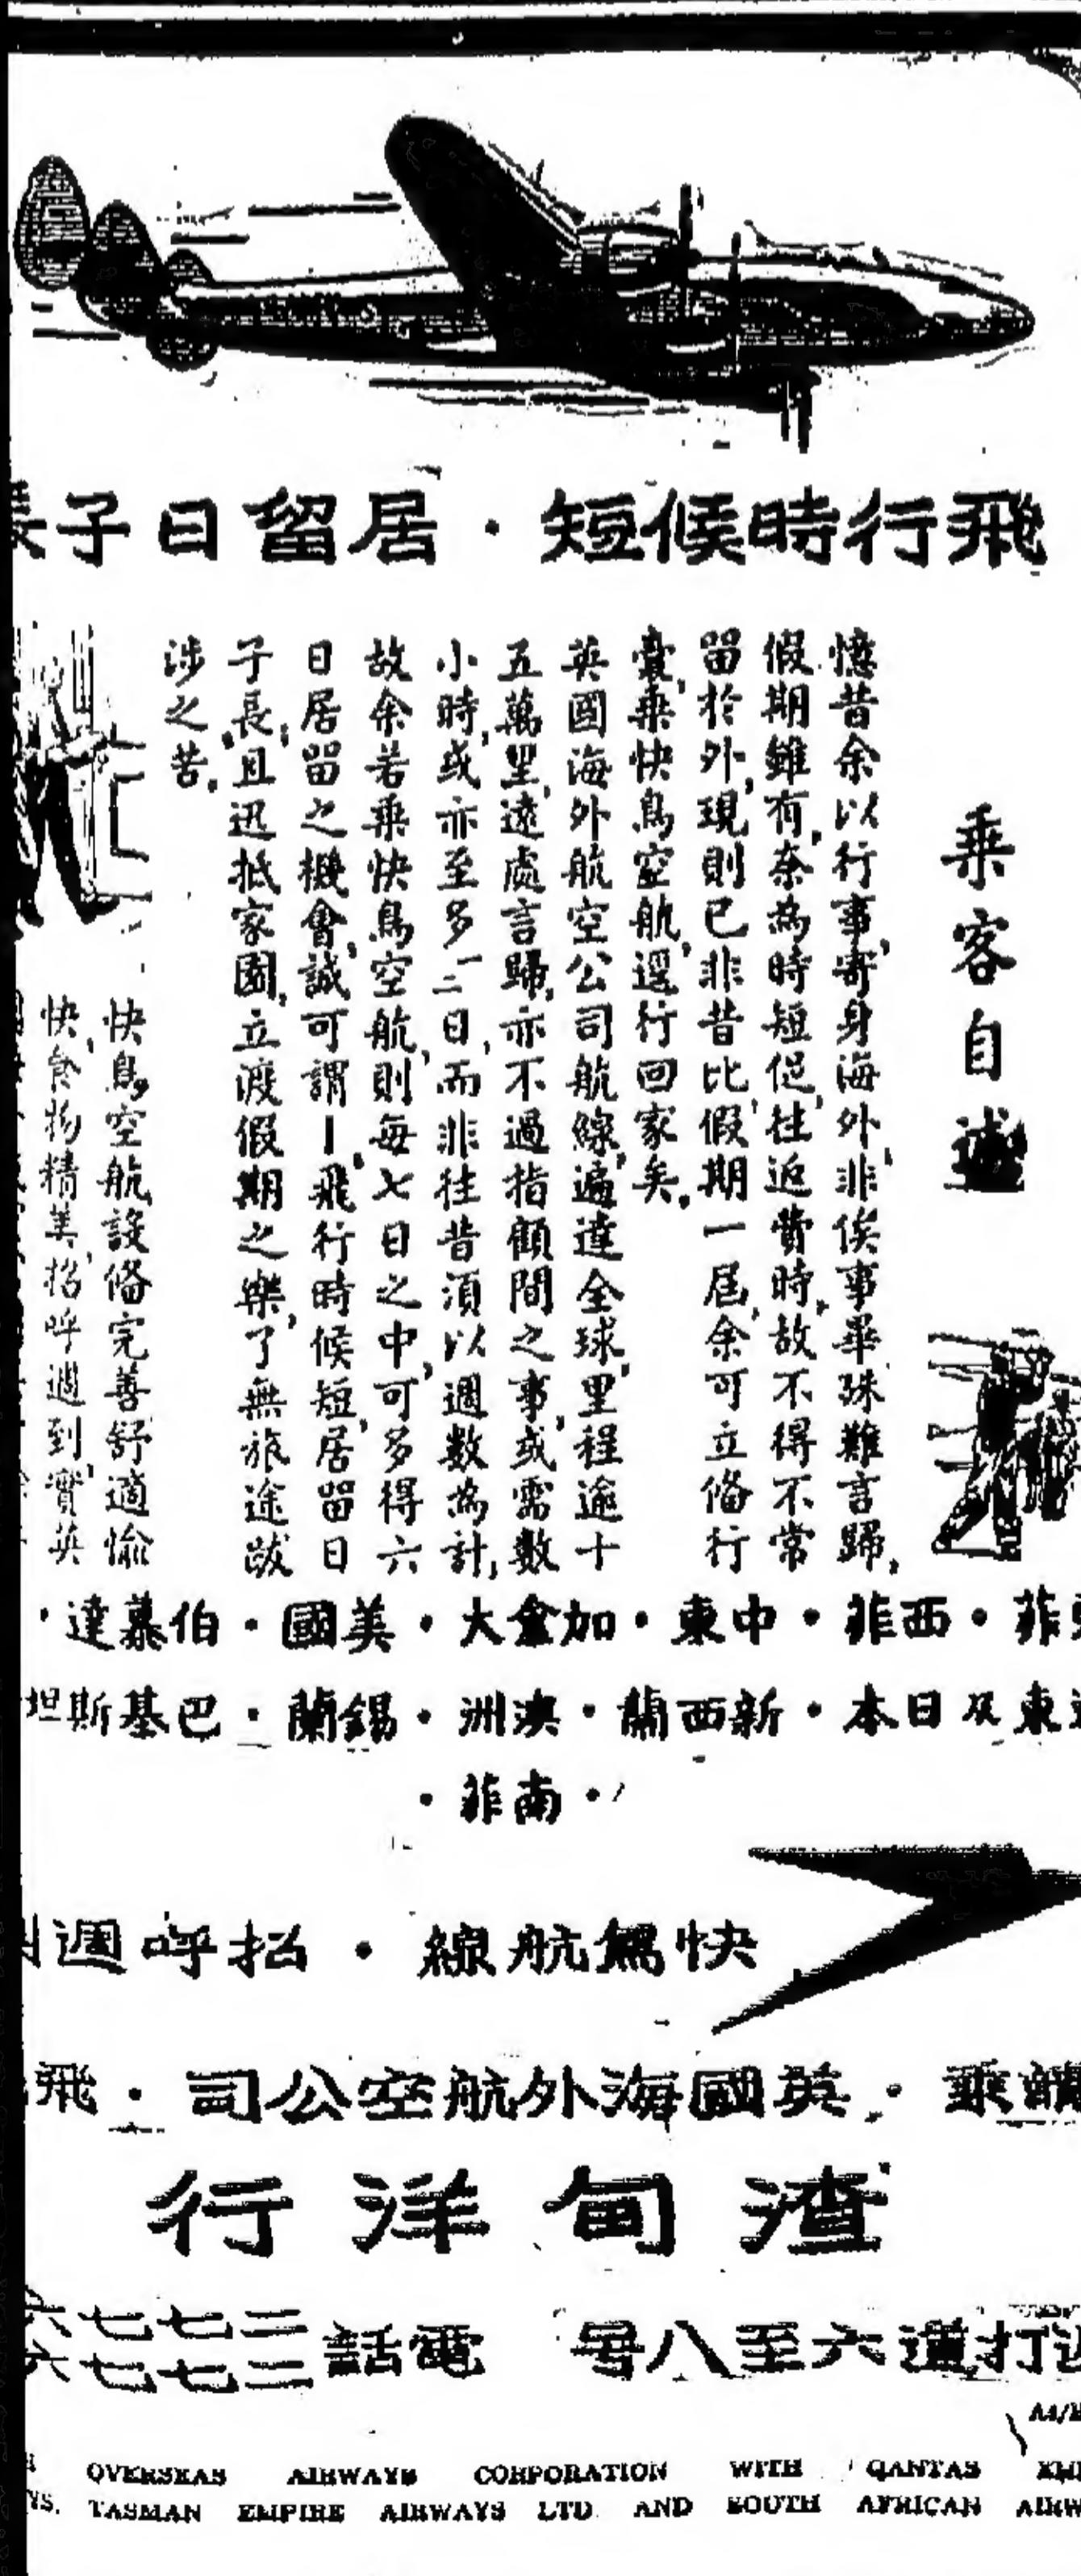 飛行時候短・居留日子長
乘客自述
憶昔余以行事,寄身海外,非俟事畢殊難言歸,
假期雖有,奈為時短促,往返費時,故不得不常
留於外,現則已非昔比,假期一屆,余可立備行
囊,乘快鳥空航,還行回家矣.
英國海外航空公司航線,遍達全球,里程逾十
五萬里,遠處言歸,亦不過指顧間之事,或需數
小時,或亦至多一二日,而非往昔須以週數為計,
故余若乘快鳥空航,則每七日之中,可多得六
日居留之機會,誠可謂—飛行時候短,居留日
子長,且迅抵家園,立渡假期之樂,了無旅途跋
涉之苦.
快鳥空航設備完善舒適愉
快,食物精美,招呼週到,實英
菲・西菲・中東・加拿大・美國・伯慕達・
東及日本・新西蘭・澳洲・錫蘭・巴基斯坦
・南菲・
快鳥航線・招呼週
請乘・英國海外航空公司・飛
渣甸洋行
打道六至八号 電話 二七七六 二七七六
OVERSEAS AIRWAYS CORPORATION WITH QANTAS
TASMAN EMPIRE AIRWAYS LTD AND SOUTH AFRICAN